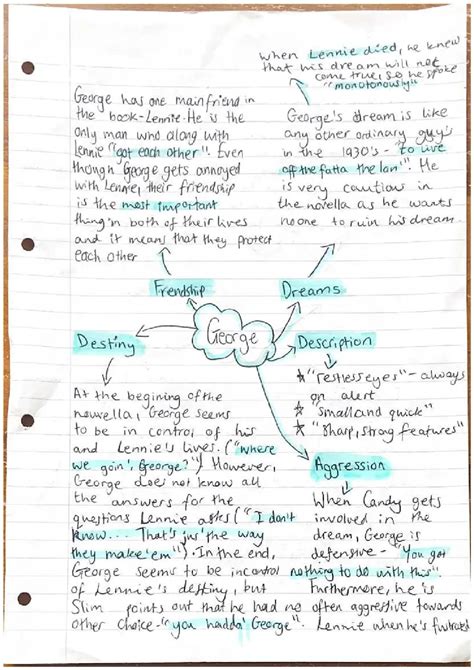 when Lennie died, he knew
that his dream will not
come true, so he spoke
"monotonously"
George has one main friend in
the book-Lennie. He is the
only man who along with
Lennie "got each other". Even
though George gets annoyed
with Lennie, their friendship
is the most important
thing in both of their lives
and it means that they protect
each other
George's dream is like
any other ordinary guy's
in the 1930's - "to live
off the fatta the lan". He
is very cautious in
the novella as he wants
no one to ruin his dream.
Frendship
Dreams
George
Destiny
Description
"restless eyes" - always
on alert
"small and quick"
"sharp, strong features"
At the begining of the
nouvella, George seems
to be in control of his
and Lennie's lives. ("where
we goin', George?") However,
George does not know all
the answers for the
questions Lennie asks ("I don't
know... That's jus' the way
they make 'em"). In the end,
George seems to be incontrol
of Lennie's destiny, but
Slim points out that he had no
other choice - "you hadda' George".
Aggression
When Candy gets
involved in the
dream, George is
defensive - "You got
nothing to do with this"
Furthermore, he is
often aggressive towards
Lennie when he's frustrated